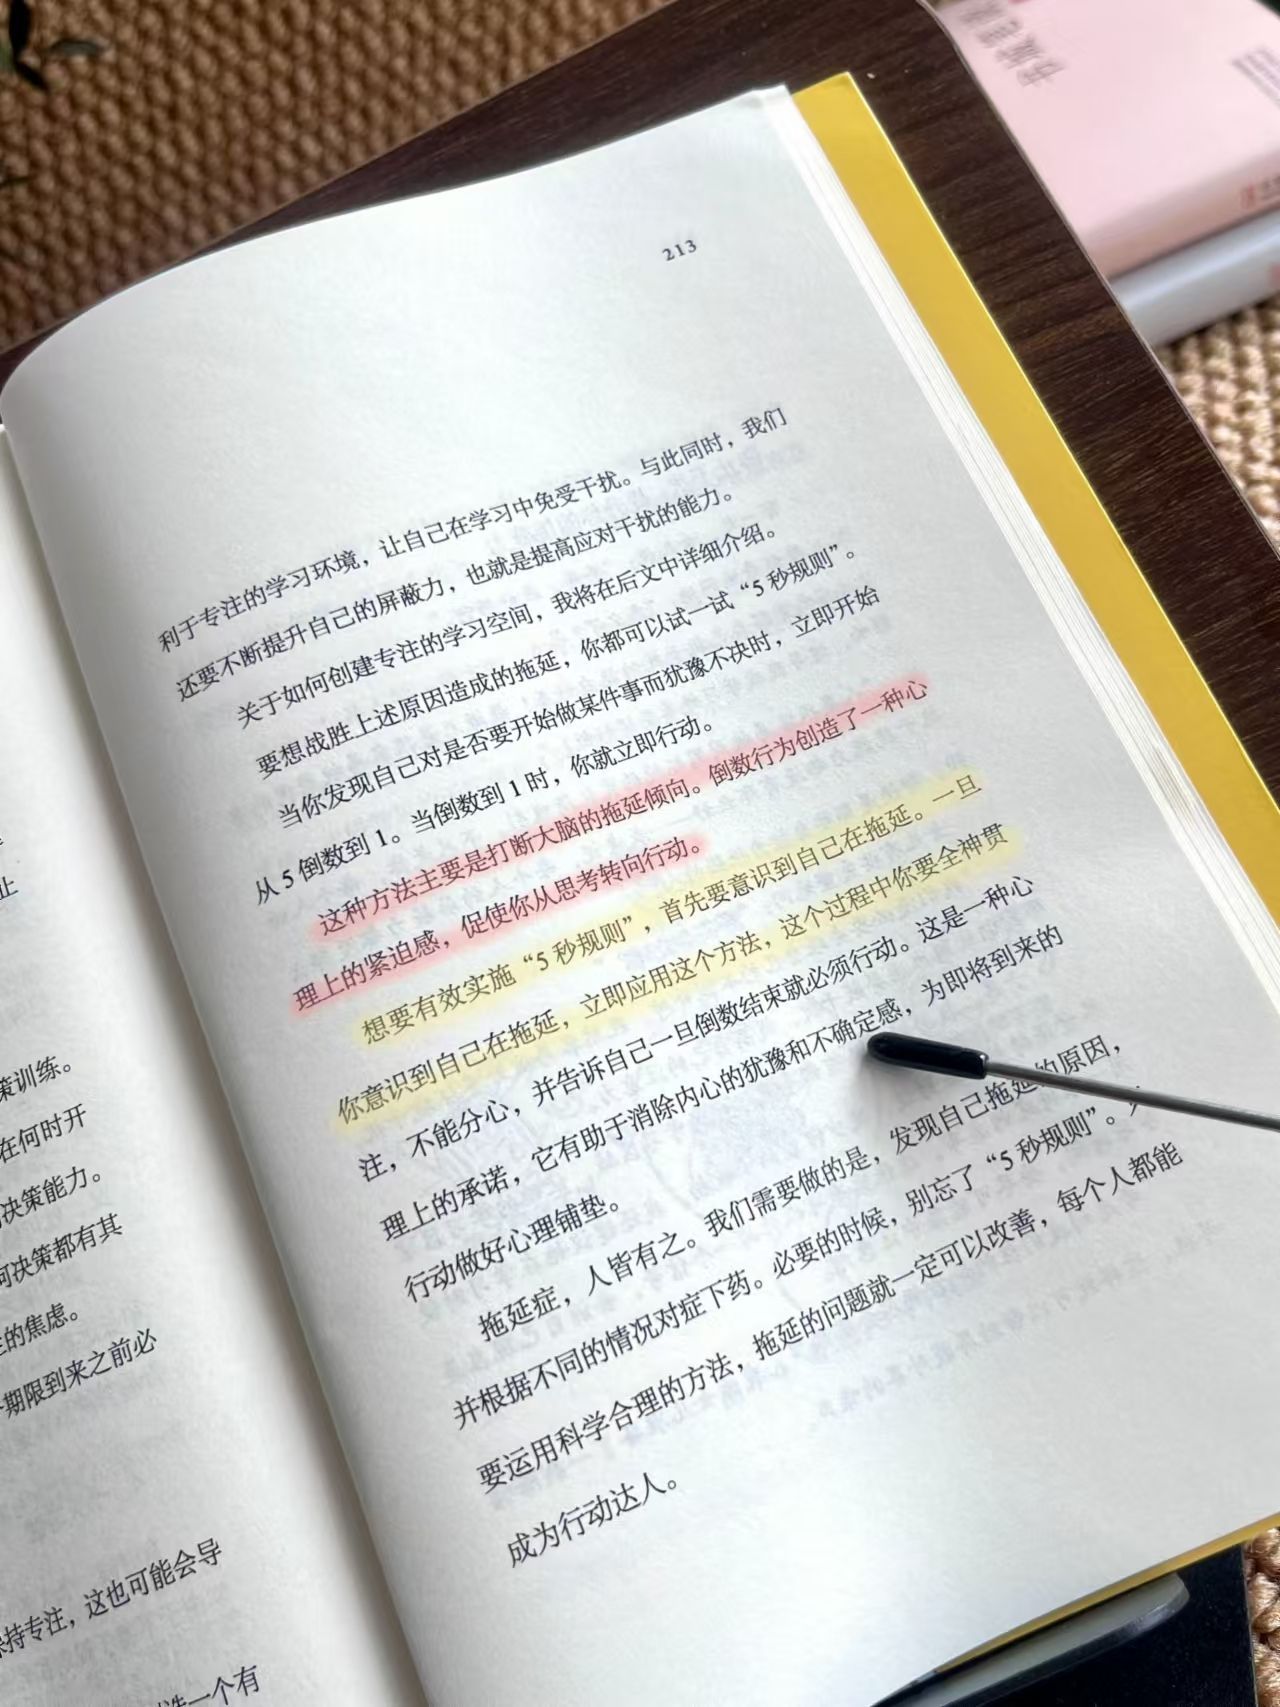 213
利于专注的学习环境，让自己在学习中免受干扰。与此同时，我们
还要不断提升自己的屏蔽力，也就是提高应对干扰的能力。
关于如何创建专注的学习空间，我将在后文中详细介绍。
要想战胜上述原因造成的拖延，你都可以试一试“5 秒规则”。
当你发现自己对是否要开始做某件事而犹豫不决时，立即开始
从 5 倒数到 1。当倒数到 1 时，你就立即行动。
这种方法主要是打断大脑的拖延倾向。倒数行为创造了一种心
理上的紧迫感，促使你从思考转向行动。
想要有效实施“5 秒规则”，首先要意识到自己在拖延。一旦
你意识到自己在拖延，立即应用这个方法，这个过程中你要全神贯
注，不能分心，并告诉自己一旦倒数结束就必须行动。这是一种心
理上的承诺，它有助于消除内心的犹豫和不确定感，为即将到来的
行动做好心理铺垫。
拖延症，人皆有之。我们需要做的是，发现自己拖延的原因，
并根据不同的情况对症下药。必要的时候，别忘了“5 秒规则”。
要运用科学合理的方法，拖延的问题就一定可以改善，每个人都能
成为行动达人。
止
策训练。
在何时开
决策能力。
何决策都有其
的焦虑。
期限到来之前必
持专注，这也可能会导
一个有